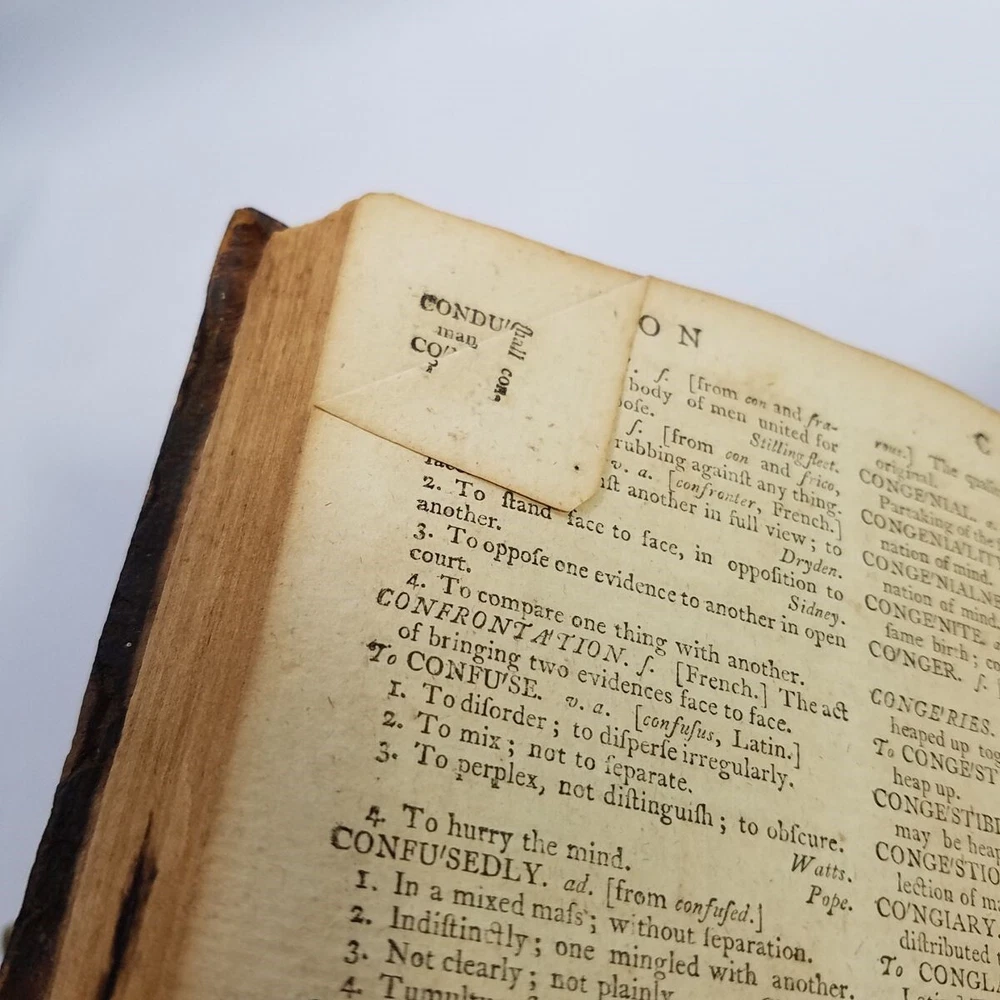 CONDU'
man
CO'
shall
con-
ON
. ſ. [from con and fra-
body of men united for
poſe.
Stillingfleet.
ſ. [from con and frico,
rubbing againſt any thing.
v. a. [confronter, French.]
another in full view; to
Dryden.
2. To ſtand face to face, in oppoſition to
another.
Sidney.
3. To oppoſe one evidence to another in open
court.
4. To compare one thing with another.
CONFRONTA'TION. ſ. [French.] The act
of bringing two evidences face to face.
To CONFU'SE. v. a. [confuſus, Latin.]
1. To diſorder; to diſperſe irregularly.
2. To mix; not to ſeparate.
3. To perplex, not diſtinguiſh; to obſcure.
Watts.
4. To hurry the mind.
Pope.
CONFU'SEDLY. ad. [from confuſed.]
1. In a mixed maſs; without ſeparation.
2. Indiſtinctly; one mingled with another.
3. Not clearly; not plainly.
4.
C
The
original.
CONGE'NIAL.
Partaking of the
CONGENIA'LITY
nation of mind.
CONGE'NIALNE
nation of mind.
CONGE'NITE.
ſame birth; co
CO'NGER. ſ.
CONGE'RIES.
heaped up tog
To CONGE'ST
heap up.
CONGE'STIBL
may be heap
CONGE'STIO
lection of ma
CO'NGIARY.
diſtributed
To CONGLA